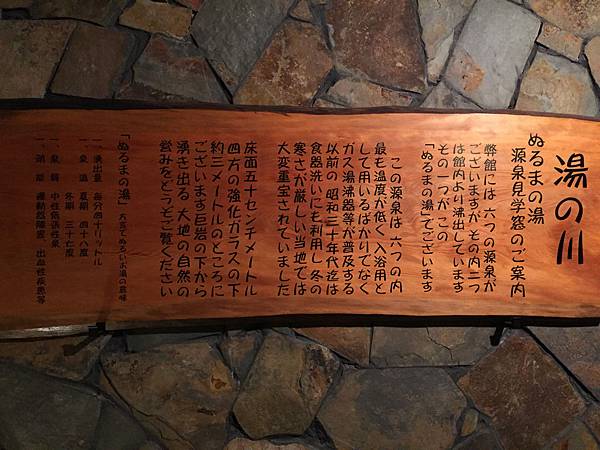 湯の川
ぬるまの湯
源泉見学窓のご案内
弊館には 六つの源泉が
ございますが その内二つ
は館内より湧出しています
その一つが この
「ぬるまの湯」でございます
この源泉は 六つの内
最も温度が低く 入浴用と
して用いるばかりでなく
ガス湯沸器等が普及する
以前の 昭和三十年代迄は
食器洗いにも利用し 冬の
寒さが厳しい当地では
大変重宝されていました
床面五十センチメートル
四方の強化ガラスの下
約三メートルのところに
ございます巨岩の下から
湧き出る 大地の自然の
営みをどうぞご覧ください
「ぬるまの湯」 方言でぬるいお湯の意味
一、湧出量 毎分四十八リットル
一、泉温 夏期 四十八度
冬期 三十七度
一、泉質 中性低張性泉
一、効能 運動器障害 出血性疾患等